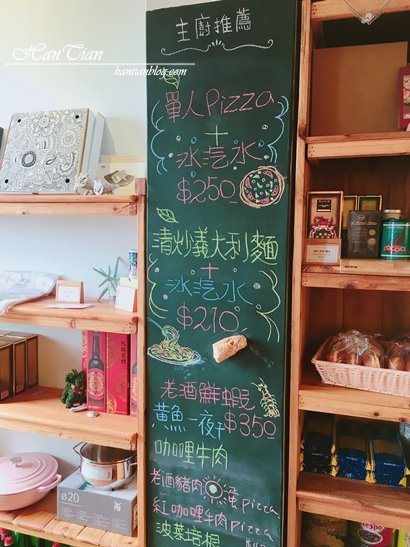 HanTian
hantianblog.com
主廚推薦
單人Pizza
+
冰汽水
$250
清炒義大利麵
+
冰汽水
$210
老酒鮮蝦
黃魚一夜干$350
咖哩牛肉
老酒豬肉 蛋pizza
紅咖哩牛肉pizza
菠菜培根
ø20